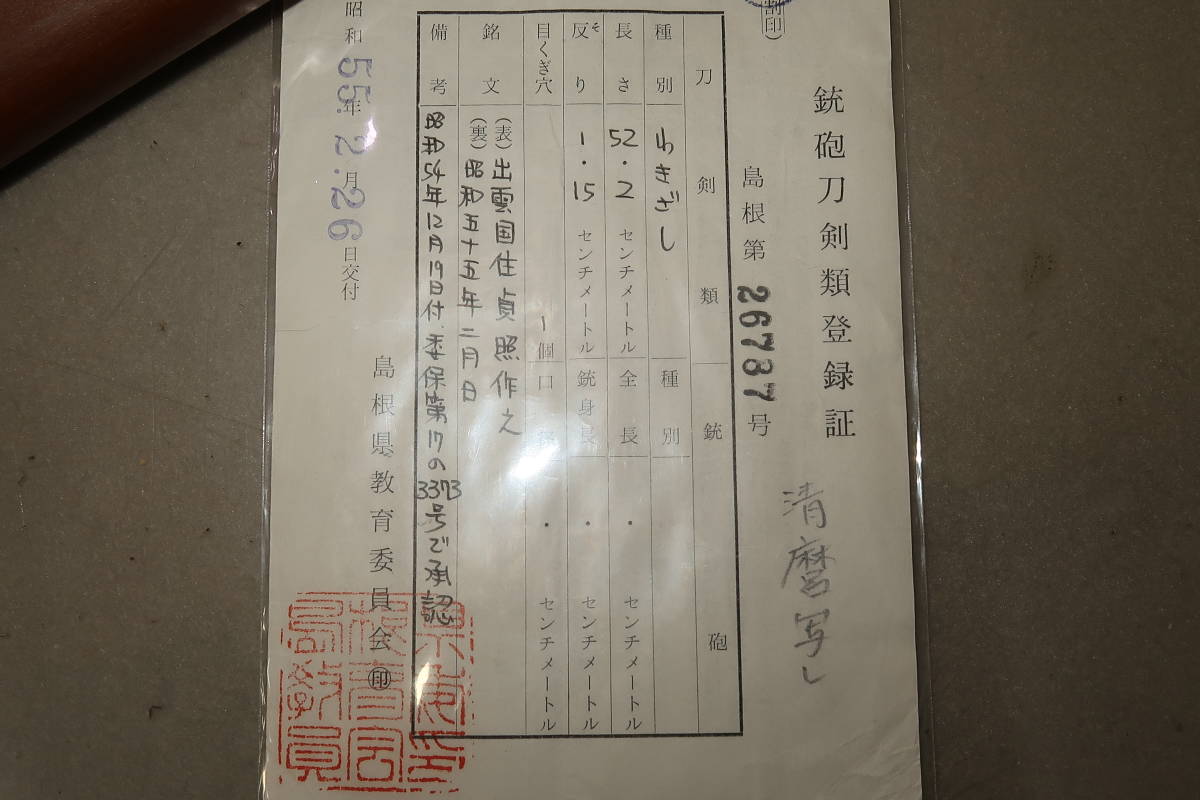 (割印)
銃砲刀剣類登録証
清麿写し
島根第26787号
刀剣類
銃砲
種別 わきざし
種別
長さ 52.2 センチメートル
全長 . センチメートル
反り 1.15 センチメートル
そ
銃身長 . センチメートル
目くぎ穴 1個
口径 . センチメートル
銘文
(表)出雲国住貞照作之
(裏)昭和五十五年二月日
備考 昭和54年12月19日付委保第17の3373号で承認
島根県教育委員会㊞
昭和55年2月26日交付